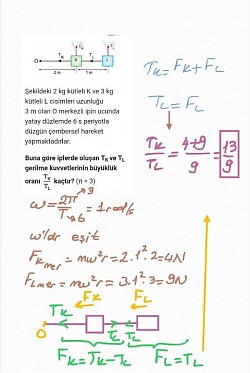 T_K
T_L
K
L
O
2 m
1 m
Şekildeki 2 kg kütleli K ve 3 kg
kütleli L cisimleri uzunluğu
3 m olan O merkezli ipin ucunda
yatay düzlemde 6 s periyotla
düzgün çembersel hareket
yapmaktadırlar.
Buna göre iplerde oluşan T_K ve T_L
gerilme kuvvetlerinin büyüklük
oranı T_K/T_L kaçtır? (π = 3)
T_K = F_K + F_L
T_L = F_L
T_K/T_L = (4+9)/9 = 13/9
ω = 2π/T = 1 rad/s
3
6
ω'lar eşit
F_Kmer = mω²r = 2.1².2 = 4N
F_Lmer = mω²r = 3.1².3 = 9N
F_K F_L
T_K
O
T_L T_L
F_K = T_K - T_L F_L = T_L